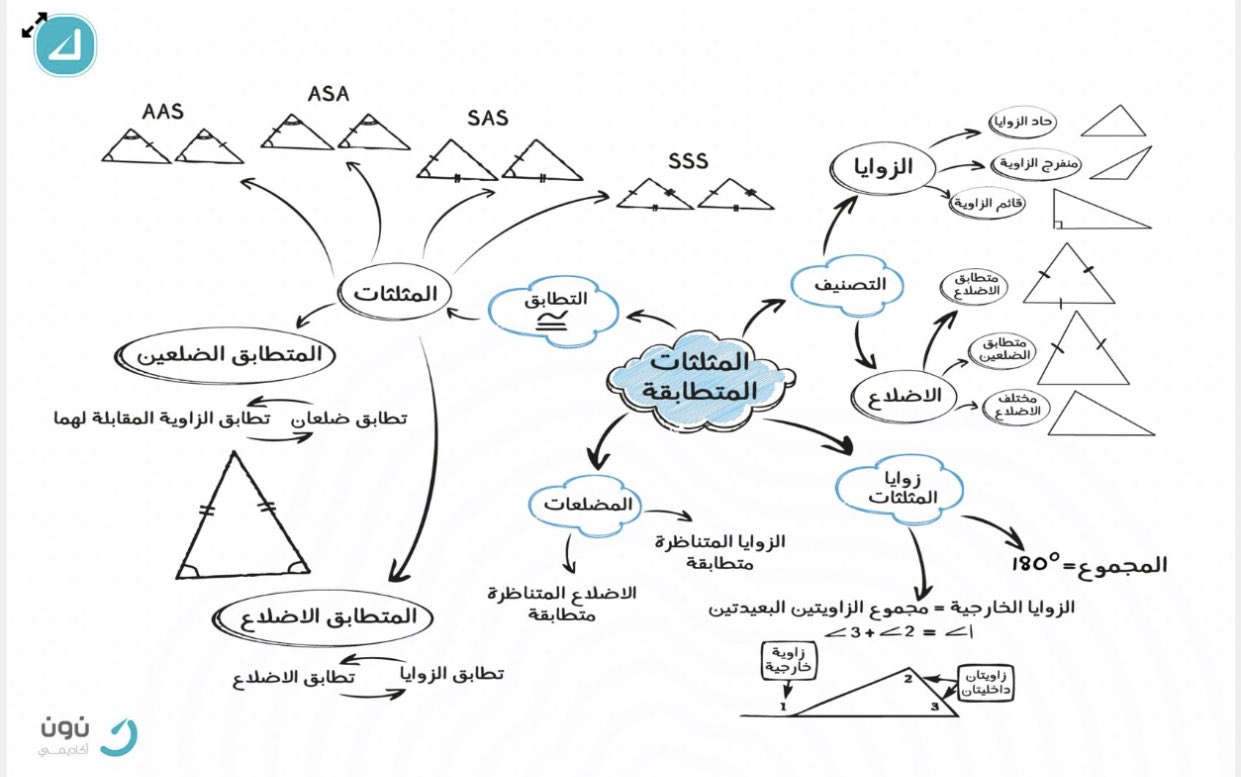 المثلثات
المتطابقة
التصنيف
الزوايا
حاد الزوايا
منفرج الزاوية
قائم الزاوية
الاضلاع
متطابق
الاضلاع
متطابق
الضلعين
مختلف
الاضلاع
زوايا
المثلثات
المجموع=180°
الزوايا الخارجية = مجموع الزاويتين البعيدتين
∠3 + ∠2 = ∠1
زاوية
خارجية
زاويتان
داخليتان
1
2
3
المضلعات
الزوايا المتناظرة
متطابقة
الاضلاع المتناظرة
متطابقة
التطابق
≅
المثلثات
SSS
SAS
ASA
AAS
المتطابق الضلعين
تطابق ضلعان
تطابق الزاوية المقابلة لهما
المتطابق الاضلاع
تطابق الزوايا
تطابق الاضلاع
نون
أكاديمي